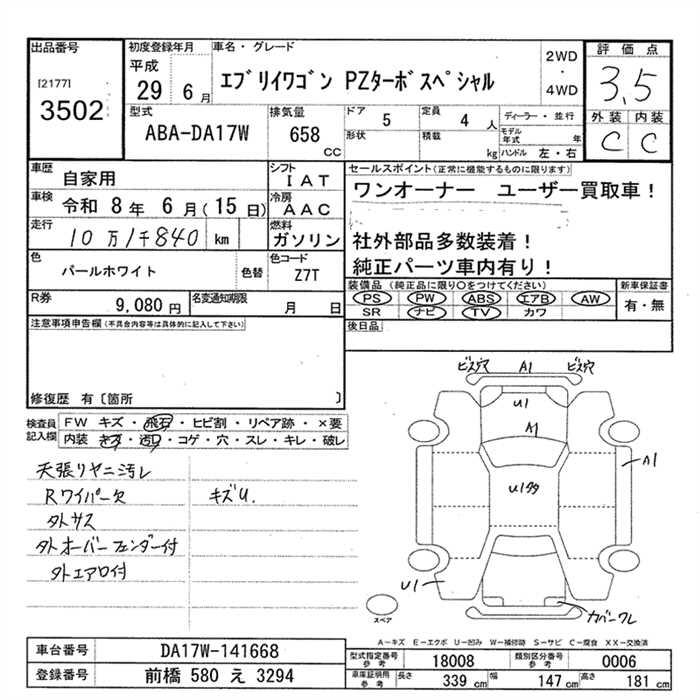 出品番号
[2177]
3502
初度登録年月
平成
29 6 月
車名・グレード
エブリイワゴン PZターボスペシャル
2WD
・
4WD
評価点
3.5
外装 内装
C C
型式
ABA-DA17W
排気量
658
CC
ドア
5
定員
4 人
形状
積載
kg
ディーラー・並行
モデル年式 年
ハンドル 左・右
車歴
自家用
シフト
IAT
車検
令和 8年 6月(15日)
冷房
AAC
走行
10万1千840 km
燃料
ガソリン
色
パールホワイト
色替
色コード
Z7T
R券
9,080円
名変通知期限
月 日
セールスポイント(正常に機能するものに限ります)
ワンオーナー ユーザー買取車!
社外部品多数装着!
純正パーツ車内有り!
装備品(純正品に限り○をつけてください)
PS PW ABS エアB AW
SR ナビ TV カワ
新車保証書
有・無
後日品
注意事項申告欄(不具合内容等は具体的に記入して下さい)
修復歴 有〔箇所 〕
検査員記入欄
FW キズ・飛石・ヒビ割・リペア跡・×要
内装 キズ・汚レ・コゲ・穴・スレ・キレ・破レ
天張リヤニ汚レ
Rワイパー欠
外サス
外オーバーフェンダー付
外エアロ付
キズU.
ビス穴 A1 ビス穴
U1
A1
A1
U1多
U1
カバーワレ
スペア
A-キズ E-エクボ U-凹み W-補修跡 S-サビ C-腐食 XX-交換済
車台番号
DA17W-141668
登録番号
前橋 580 え 3294
型式指定番号
参考
18008
類別区分番号
参考
0006
車庫証明用
参考
長さ 339 cm 幅 147 cm 高さ 181 cm